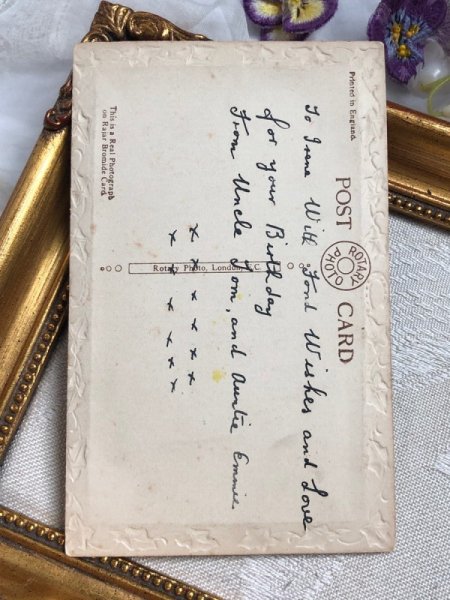 Printed in England
POST CARD
ROTARY
PHOTO
To Irene With Fond Wishes and Love
for your Birthday
From Uncle Tom, and Auntie Emmie
x x x x x x
x x x x x
Rotary Photo, London, E.C.
This is a Real Photograph
on Rajar Bromide Card